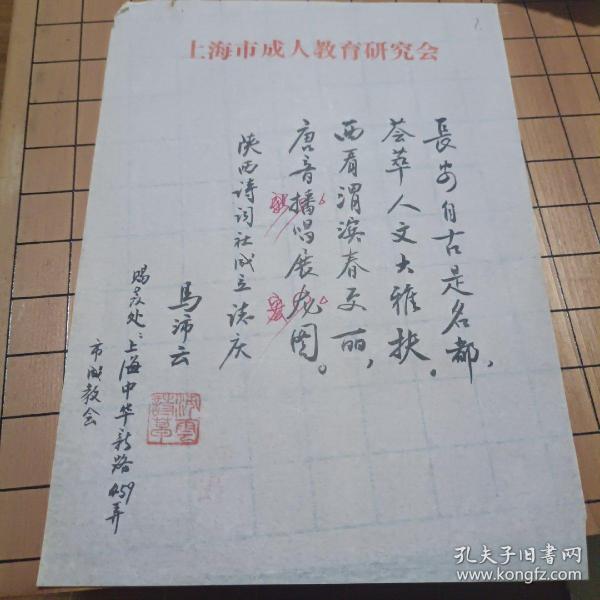 上海市成人教育研究会
長安自古是名都，
荟萃人文大雅扶。
西看渭滨春更丽，
唐音播唱展宏图。
陕西诗词社成立志庆
馬沛云
賜教处：上海中华新路459弄
市成教会
孔夫子旧书网
www.kongfz.com